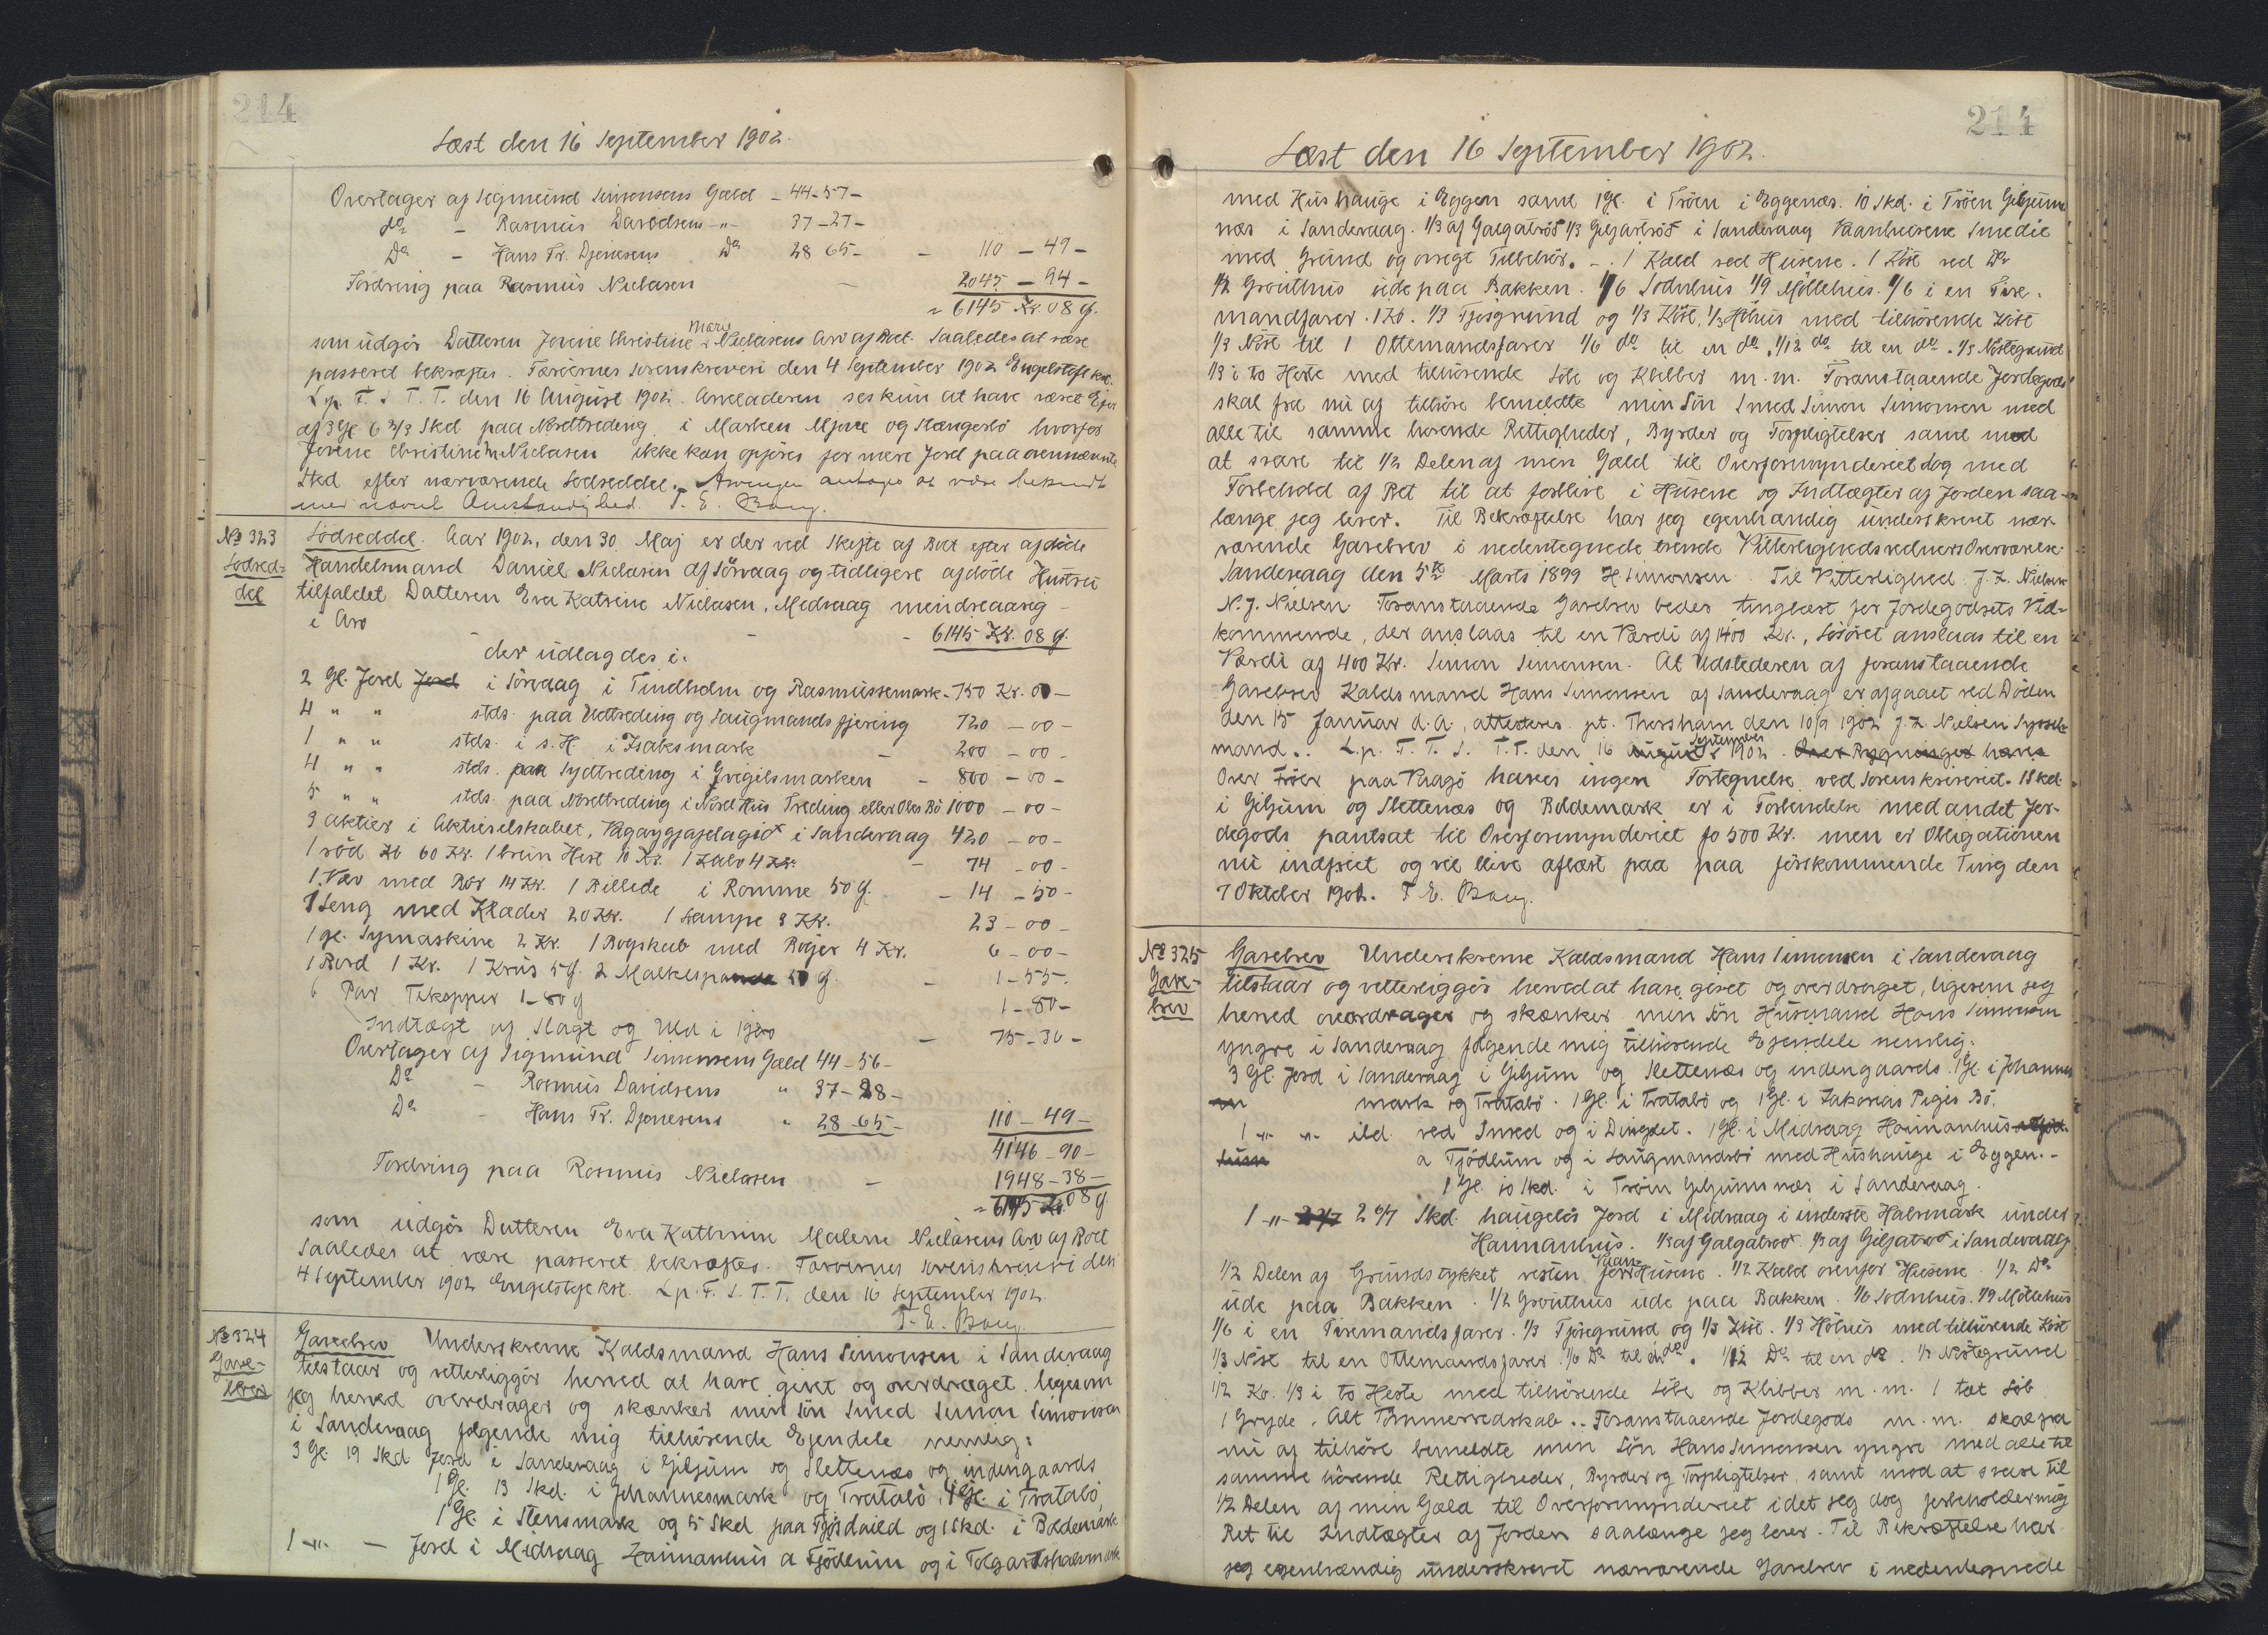 214
Læst den 16 September 1902.
Overtager af Sigmund Simonsens Gæld - 44-57-
do - Rasmus Davidsens -"- 37-27-
Do - Hans Fr. Djonesens Do 28 65- - 110 - 49 -
Fordring paa Rasmus Niclasen - 2045 - 94 -
= 6145 Kr. 08 ø.
som udgör Datteren Jovine Christine Marie Niclasens Arv af Boet. Saaledes at være
passeret bekræftes. Færöernes Sorenskriveri den 4 September 1902 Engelstoft kst.
L.p. F. S. T. T. den 16 August 1902. Arveladeren ses kun at have været Ejer
af 3 Gl 6 2/3 Skd paa Nordtreding i Marken Mjove og Stangerbö hvorfor
Jovine Christine M Niclasen ikke kan opföres for mere Jord paa ovennævnte
Sted efter nærværende Lodseddel. Arvingen antages at være bekendt
med nævnt Omstændighed. T. E. Bang.
No 323 Lodseddel. Aar 1902, den 30 Maj er der ved Skifte af Boet efter afdöde
Lodsed- Handelsmand Daniel Niclasen af Sörvaag og tidligere afdöde Hustru
del tilfaldet Datteren Eva Katrine Niclasen, Midvaag mindreaarig
i Arv - - - 6145 Kr. 08 ø.
der udlagdes i.
2 Gl. Jord Jord i Sörvaag i Tindholm og Rasmussemark - 750 Kr. 00 -
4 " " stds. paa Uttreding og Laugmandsfjering 720 - 00 -
1 " " stds. i s. H. i Isaksmark - 200 - 00 -
4 " " stds. paa Sydtreding i Gvigilsmarken - 800 - 00 -
5 " " stds. paa Nordtreding i Nord Hus Treding eller Oles Bö 1000 - 00 -
3 Aktier i Aktieselskabet, Vagaryggjafelagid i Sandevaag 420 - 00 -
1 röd Ko 60 Kr. 1 brun Hest 10 Kr. 1 Kalv 4 Kr. - 74 - 00 -
1 Væv med Rör 14 Kr. 1 Billede i Ramme 50 ø. - 14 - 50 -
1 Seng med Klæder 20 Kr. 1 Lampe 3 Kr. 23 - 00 -
1 gl. Symaskine 2 Kr. 1 Bogskab med Böger 4 Kr. 6 - 00 -
1 Bord 1 Kr. 1 Krus 5 ø. 2 Malkespande 50 ø. - 1 - 55.
6 Par Tekopper 1-80 ø 1 - 80 -
Indtægt af Slagt og Uld i 1900 - 75 - 30 -
Overtager af Sigmund Simonsens Gæld 44-56-
Do - Rasmus Davidsens " 37-28-
Do - Hans Fr. Djonesens " 28-65- 110 - 49 -
4146 - 90 -
Fordring paa Rasmus Niclasen - 1948 - 38 -
= 6145 Kr. 08 ø.
som udgör Datteren Eva Kathrine Malene Niclasens Arv af Boet
Saaledes at være passeret bekræftes. Færöernes Sorenskriveri den
4 September 1902 Engelstoft kst. L.p. F. S. T. T. den 16 September 1902.
T. E. Bang.
No 324 Gavebrev Underskrevne Kaldsmand Hans Simonsen i Sandevaag
Gave- tilstaar og vitterliggör herved at have givet og overdraget, ligesom
brev jeg herved overdrager og skænker min Sön Smed Simon Simonsen
i Sandevaag fölgende mig tilhörende Ejendele nemlig:
3 Gl 19 Skd Jord i Sandevaag i Giljum og Slettenæs og indengaards
1 Gl. 13 Skd. i Johannesmark og Tratabö, 1 Gl. i Tratabö,
1 Gl. i Stensmark og 5 Skd paa Fjosdaild og 1 Skd. i Boldemark
1 -"- - Jord i Midvaag Haimanhus a Fjödlum og i Tolgardshalvmark
214
Læst den 16 September 1902.
med Hushauge i Eggen samt 1 Gl. i Tröen i Eggenæs. 10 Skd. i Tröen Giljum
næs i Sandevaag. 1/3 af Galgatröd 1/3 Giljartröd i Sandevaag Vaanhusene Smedie
med Grund og övrigt Tilbehör. -. 1 Kald ved Husene. 1 Köst ved Do
1/2 Grouthus ude paa Bakken. 1/6 Sodnhus 1/9 Möllehus. 1/6 i en Tire-
mandsfarer. 1 Ko. 1/3 Fjosgrund og 1/3 Köst, 1/3 Höhus med tilhörende Köst
1/3 Nöst til 1 Ottemandsfarer 1/6 do til en do. 1/12 do til en do. 1/3 Nöstegrund
1/3 i to Heste med tilhörende Löbe og Klibber m.m. Foranstaaende Jordegods
skal fra nu af tilhöre bemeldte min Sön Smed Simon Simonsen med
alle til samme hörende Rettigheder, Byrder og Forpligtelser samt med
at svare til 1/2 Delen af min Gæld til Overformynderiet dog med
Forbehold af Ret til at forblive i Husene og Indtægter af Jorden saa-
længe jeg lever. Til Bekræftelse har jeg egenhændig underskrevet nær-
værende Gavebrev i nedentegnede tvende Vitterlighedsvidners Overværelse.
Sandevaag den 5te Marts 1899 H Simonsen. Til Vitterlighed J. Z. Nielsen
N. J. Nielsen. Foranstaaende Gavebrev bedes tinglæst for Jordegodsets Ved-
kommende, der anslaas til en Værdi af 1400 Kr., Lösöret anslaas til en
Værdi af 400 Kr. Simon Simonsen. At Udstederen af foranstaaende
Gavebrev Kaldsmand Hans Simonsen af Sandevaag er afgaaet ved Döden
den 15 Januar d.a., attesteres. pt. Thorshavn den 10/9 1902 J. Z. Nielsen Syssel-
mand. L.p. F. T. S. T. T. den 16 August September 1902. Over Bygninger haves
Over Tröer paa Vaagö haves ingen Fortegnelse ved Sorenskriveriet. 1 Skd.
i Giljum og Slettenæs og Boldemark er i Forbindelse med andet Jor-
degods pantsat til Overformynderiet fo 500 Kr. men er Obligationen
nu indfriet og vil blive aflæst paa paa förstkommende Ting den
7 Oktober 1902. T E. Bang.
No 325 Gavebrev Underskrevne Kaldsmand Hans Simonsen i Sandevaag
Gave- tilstaar og vitterliggör herved at have givet og overdraget, ligesom jeg
brev herved overdrager og skænker min Sön Husmand Hans Simonsen
yngre i Sandevaag fölgende mig tilhörende Ejendele nemlig:
3 Gl. Jord i Sandevaag i Giljum og Slettenæs og indengaards 1 Gl. i Johannes
mark og Tratabö. 1 Gl. i Tratabö og 1 Gl. i Zakarias Pigis Bö.
1 -"- -"- ild. ved Sund og i Dingdet. 1 Gl. i Midvaag Haimanhus
a Fjödlum og i Laugmandsbö med Hushauge i Eggen. -
1 Gl. 10 Skd. i Tröin Giljumnæs i Sandevaag.
1 -"- 2 6/7 Skd. haugelös Jord i Midvaag i inderste Halvmark under
Haimanhus. 1/3 af Galgatröd 1/3 af Giljatröd i Sandevaag
1/2 Delen af Grundstykket vesten for Vaan Husene. 1/2 Kald ovenfor Husene. 1/2 Do
ude paa Bakken. 1/2 Grouthus ude paa Bakken. 1/6 Sodnhus. 1/9 Möllehus
1/6 i en Tiremandsfarer. 1/3 Fjosegrund og 1/3 Köst. 1/3 Höhus med tilhörende Köst
1/3 Nöst til en Ottemandsfarer. 1/6 Do til en do. 1/12 Do til en do. 1/3 Nöstegrund
1/2 Ko. 1/3 i to Heste med tilhörende Löbe og Klibber m.m. 1 tæt Löb
1 Gryde. Alt Tömmerredskab.. Foranstaaende Jordegods m.m. skal fra
nu af tilhöre bemeldte min Sön Hans Simonsen yngre med alle til
samme hörende Rettigheder, Byrder og Forpligtelser, samt mod at svare til
1/2 Delen af min Gæld til Overformynderiet idet jeg dog forbeholder mig
Ret til Indtægter af Jorden saalænge jeg lever. Til Bekræftelse har
jeg egenhændig underskrevet nærværende Gavebrev i nedentegnede